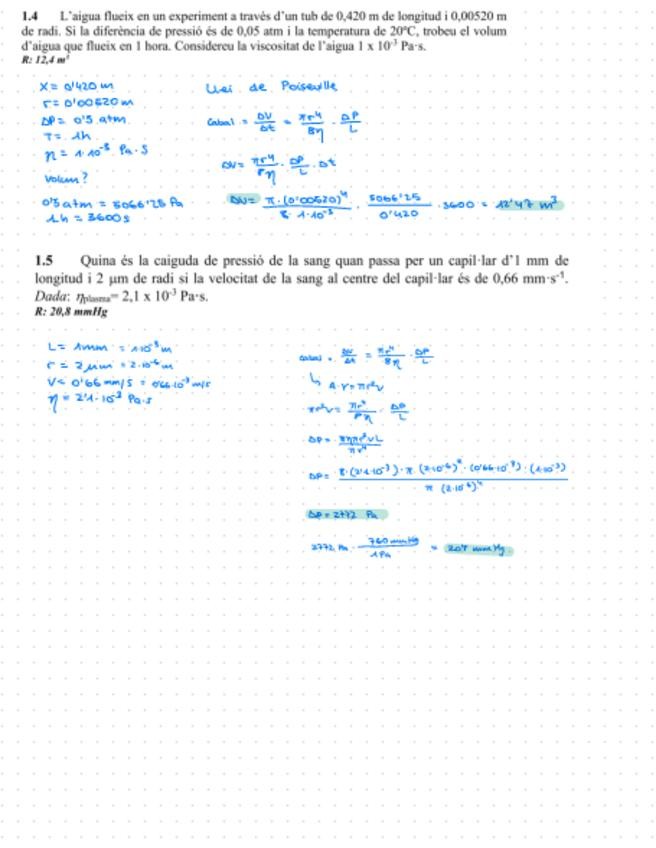 1.4 L'aigua flueix en un experiment a través d'un tub de 0,420 m de longitud i 0,00520 m
de radi. Si la diferència de pressió és de 0,05 atm i la temperatura de 20ºC, trobeu el volum
d'aigua que flueix en 1 hora. Considereu la viscositat de l'aigua 1 x 10⁻³ Pa·s.
R: 12,4 m³
X = 0'420 m
r = 0'00520 m
ΔP = 0'5 atm
T = 1h
η = 1·10⁻³ Pa·s
Volum?
0'5 atm = 5066'25 Pa
1h = 3600s
Llei de Poiseuille
Cabal = ΔV/Δt = πr⁴/8η · ΔP/L
ΔV = πr⁴/8η · ΔP/L · Δt
ΔV = π·(0'00520)⁴/8·1·10⁻³ · 5066'25/0'420 · 3600 = 12'47 m³
1.5 Quina és la caiguda de pressió de la sang quan passa per un capil·lar d'1 mm de
longitud i 2 μm de radi si la velocitat de la sang al centre del capil·lar és de 0,66 mm·s⁻¹.
Dada: ηplasma= 2,1 x 10⁻³ Pa·s.
R: 20,8 mmHg
L = 1mm = 1·10⁻³ m
r = 2μm = 2·10⁻⁶ m
V = 0'66 mm/s = 0'66·10⁻³ m/s
η = 2'1·10⁻³ Pa·s
Cabal = ΔV/Δt = πr⁴/8η · ΔP/L
↳ A·v = πr²v
πr²v = πr⁴/8η · ΔP/L
ΔP = 8ηπr²vL/πr⁴
ΔP = 8·(2'1·10⁻³)·π (2·10⁻⁶)²·(0'66·10⁻³)·(1·10⁻³)/π (2·10⁻⁶)⁴
ΔP = 2772 Pa
2772 Pa · 760 mmHg/1 Pa = mmHg